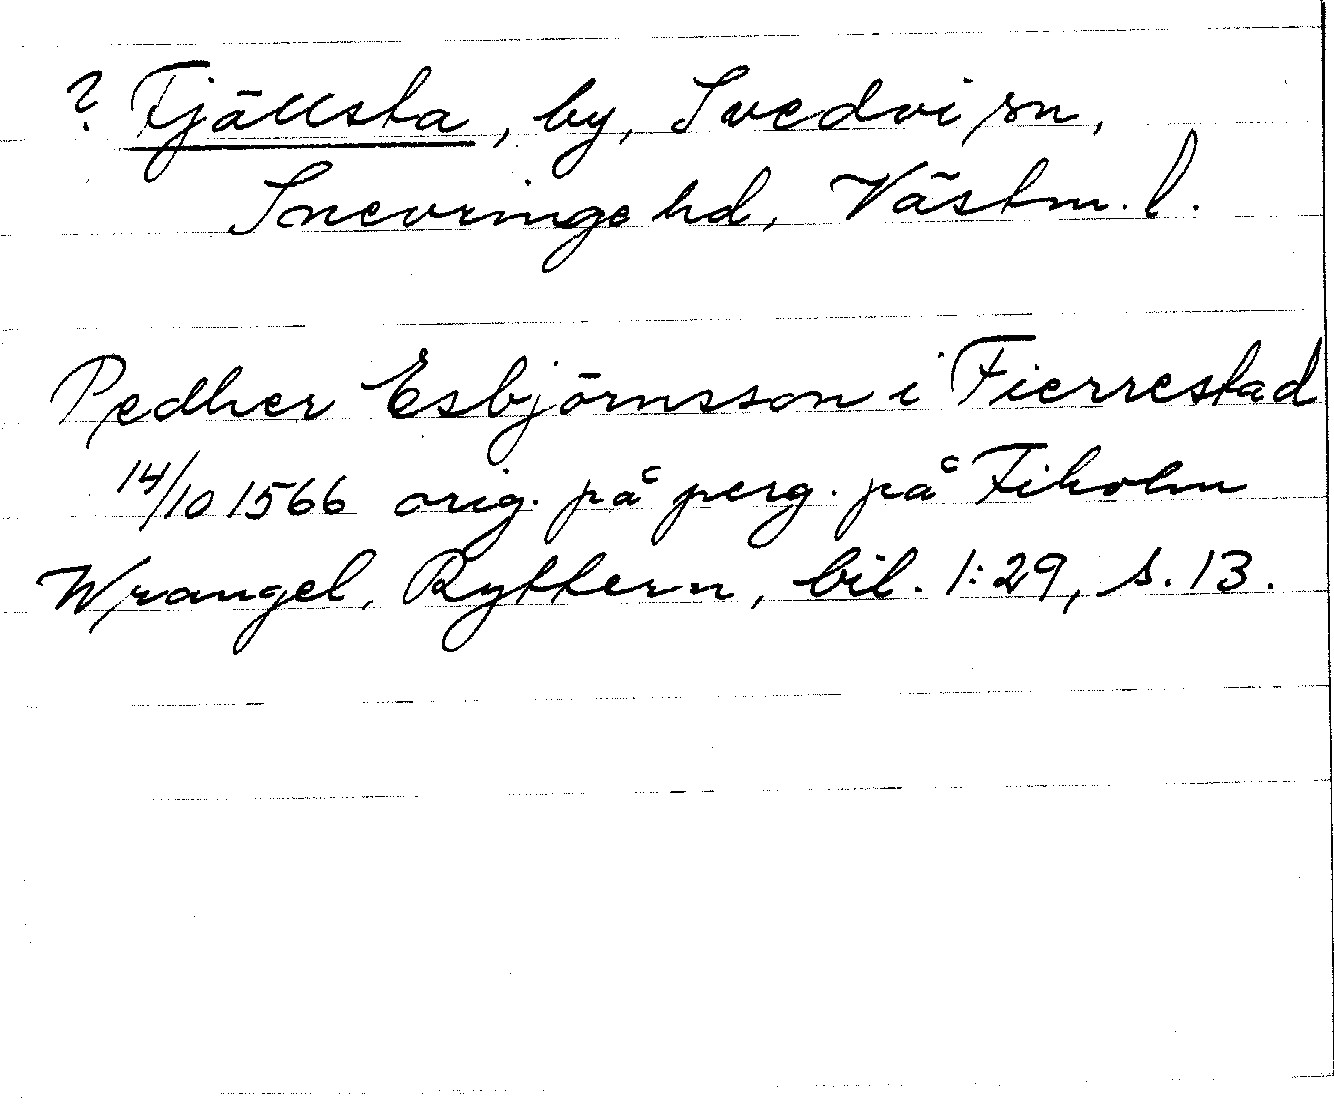 ? Fjällsta, by, Svedvi sn,
Snevringe hd, Västm. l.
Pedher Esbjörnsson i Fierrestad
14/10 1566 orig. på perg. på Fiholm
Wrangel, Ryttern, bil. 1:29, s. 13.